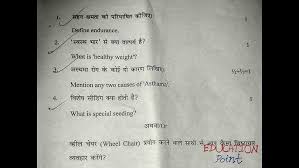 1. सहन क्षमता को परिभाषित कीजिए। 1
Define endurance.
2. 'स्वस्थ भार' से क्या तात्पर्य है? 1
What is 'healthy weight'?
3. अस्थमा रोग के कोई दो कारण लिखिए। ½+½=1
Mention any two causes of 'Asthama'.
4. विशेष सीडिंग क्या होता है? 1
What is special seeding?
अथवा/Or
व्हील चेयर (Wheel Chair) प्रयोग करने वाले साथी से आप कैसा
व्यवहार करेंगे?
EDUCATION
Point